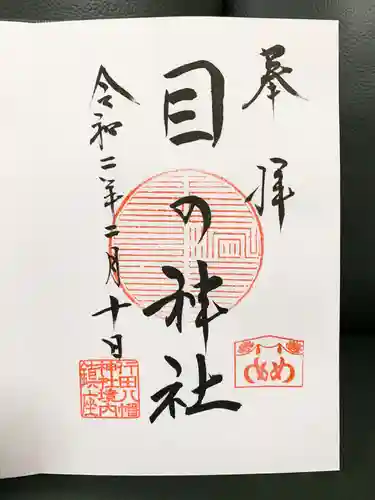 奉拝
目の神社
令和二年二月十日
行田八幡
神社境内
鎮座
め